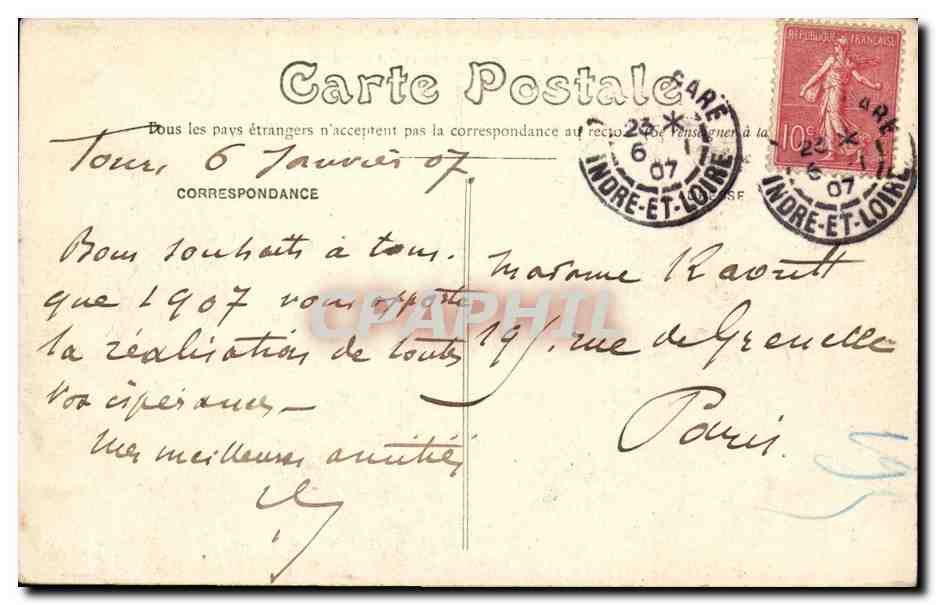 Carte Postale
Tous les pays étrangers n'acceptent pas la correspondance au recto à la
Tours, 6 Janvier 07.
CORRESPONDANCE
Bons souhaits à tous.
que 1907 vous apporte
la réalisation de toutes
vos espérances_
Mes meilleures amitiés
Madame
195, rue de Grenelle
Paris.
RÉPUBLIQUE FRANÇAISE
10c
GARE
23 *
6 1
07
INDRE-ET-LOIRE
ARE
23 *
6 1
07
INDRE-ET-LOIRE
CPAPHIL